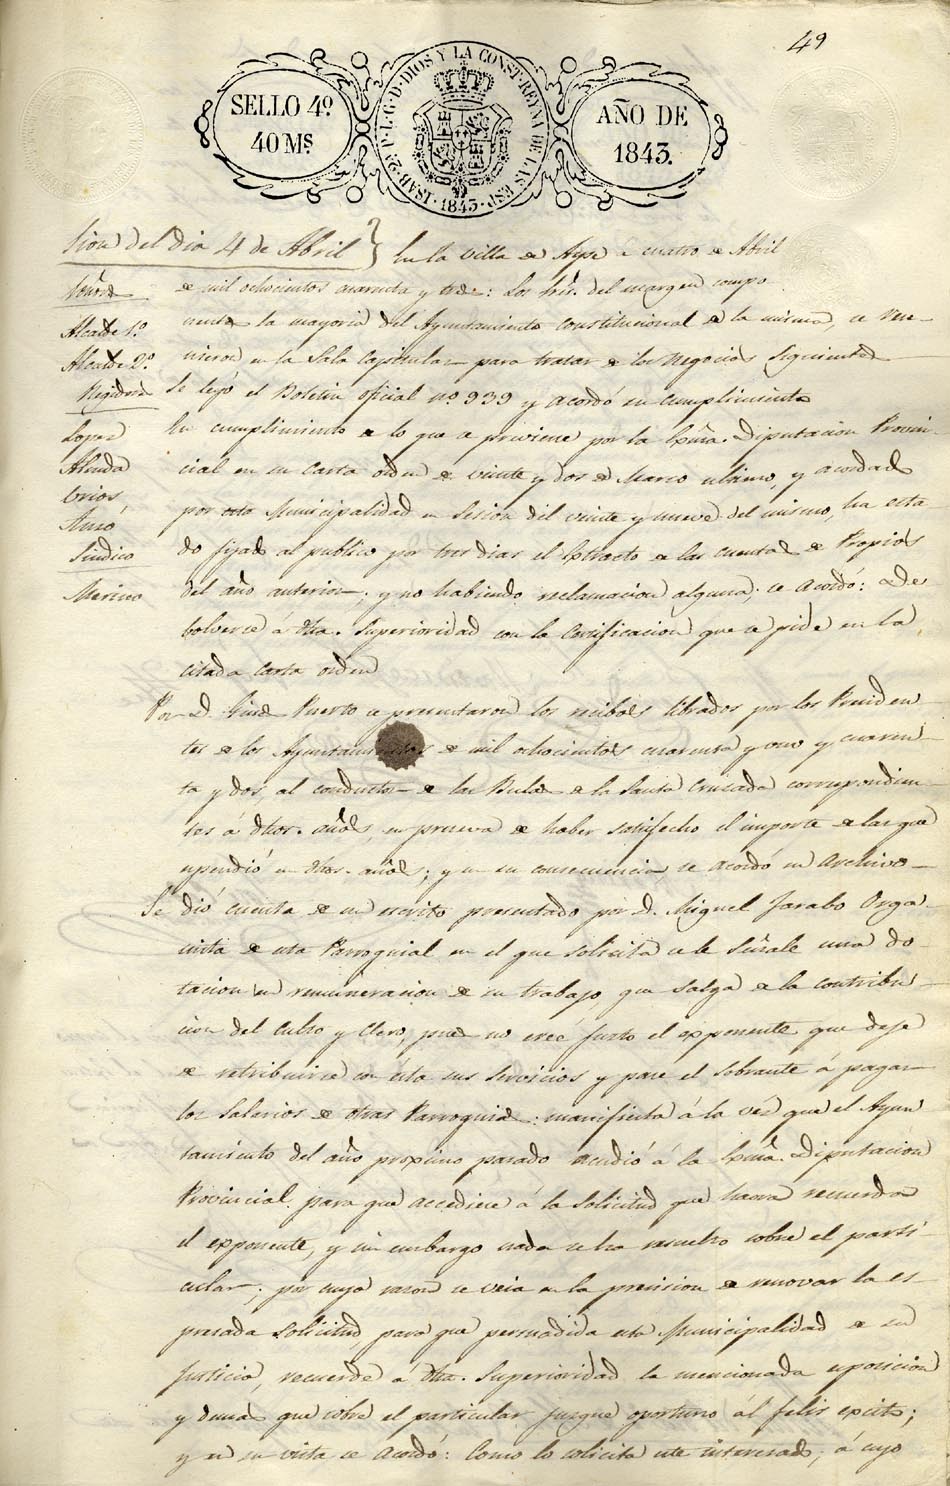 49
SELLO 4º.
40 Mˢ
ISAB. 2ª P. L. G. D. DIOS Y LA CONST. REYNA DE LAS ESP. 1843
AÑO DE
1843.
sion del dia 4 de Abril
Señores
Alcalde 1.º
Alcalde 2.º
Regidores
Lopez
Almda
Brios
Amó
Sindico
Merino
En la villa de Aspe a cuatro de Abril
de mil ochocientos cuarenta y tres: Los Srs. del margen compo
nentes la mayoria del Ayuntamiento constitucional de la misma, se reu
nieron en la Sala Capitular para tratar de los negocios siguientes
Se leyó el Boletin oficial nº. 939 y acordó su cumplimiento
En cumplimiento de lo que se previene por la Exma. Diputacion Provin-
cial en su carta orden de veinte y dos de Marzo ultimo, y acordado
por esta Municipalidad en Sesion del veinte y nueve del mismo, ha esta
do fijado al publico por tres dias el Extracto de las cuentas de Propios
del año anterior; y no habiendo reclamacion alguna; se acordó: De
bolverse á dha. Superioridad con la Certificacion que se pide en la
citada carta orden
Por D. Ginés Puerto se presentaron los recibos librados por los Presiden
tes de los Ayuntamientos de mil ochocientos cuarenta y uno y cuaren
ta y dos, al conductor de las Bulas de la Santa Cruzada correspondien-
tes á dhos. años, en prueva de haber satisfecho el importe de las que
espendió en dhos. años; y en su consecuencia se acordó su archivo
Se dió cuenta de un escrito presentado por D. Miguel Jarabo Orga
nista de esta Parroquial en el que solicita se le señale una do
tacion en remuneracion de su trabajo que salga de la contribu-
cion del Culto y Clero, pues no cree justo el exponente que deje
de retribuirse con esta sus servicios y pase el sobrante á pagar
los salarios de otras Parroquias: manifiesta á la vez que el Ayun
tamiento del año proximo pasado acudió á la Exma. Diputacion
Provincial para que accediese á la solicitud que haora recuerda
el exponente, y sin embargo nada se ha resuelto sobre el parti-
cular; por cuya razon se veia en la precision de renovar la es-
presada solicitud, para que persuadida esta Municipalidad de su
justicia, recuerde á dha. Superioridad la mencionada esposicion
y demas que sobre el particular juzgue oportuno al felis exito;
y en su vista se acordó: Como lo solicita este interesado, á cuyo